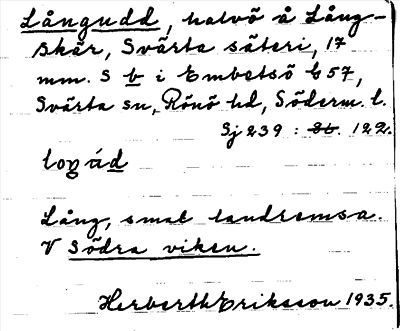 Långudd, halvö å Lång-
skär, Svärta säteri, 17
mm. S b i Embetsö E57,
Svärta sn, Rönö hd, Söderm. l.
Sj 239 : 86. 122.
loŋ ád
Lång, smal landremsa.
V Södra viken.
Herberth Eriksson 1935.